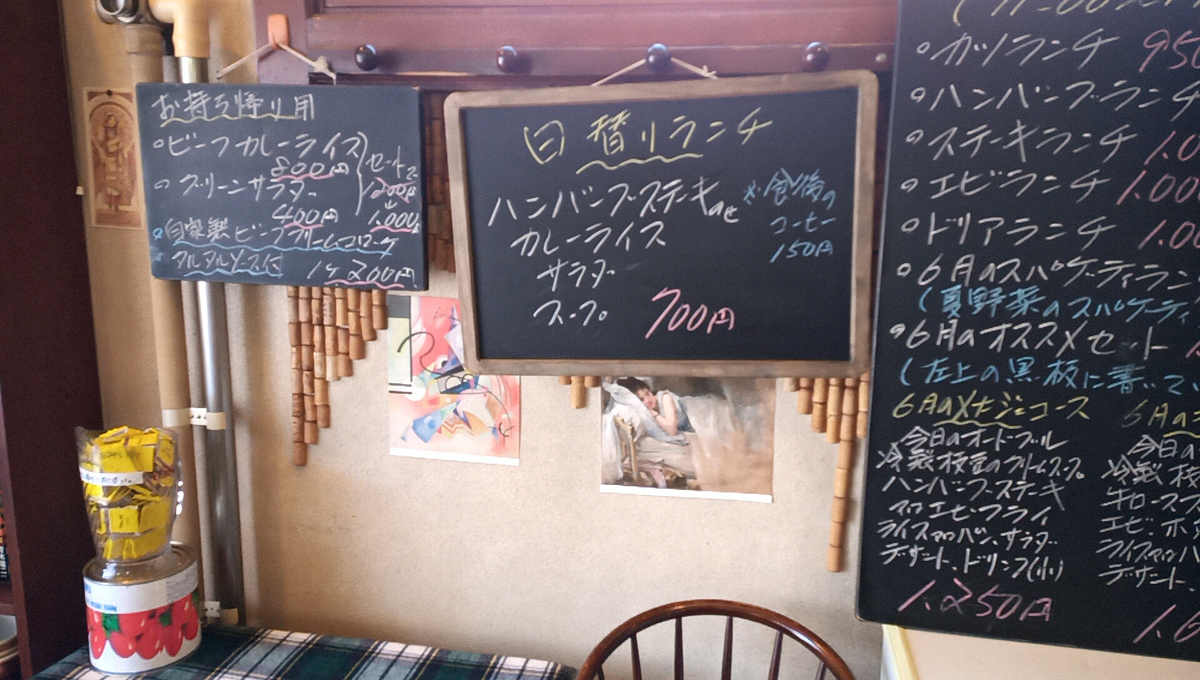 お持ち帰り用
○ビーフカレーライス
800円
○グリーンサラダー
400円
セットで
1,200円
↓
1,000円
自家製ビーフクリームコロッケ
タルタルソース付
1ケ200円
日替りランチ
ハンバーグステーキのせ
カレーライス
サラダ
スープ
700円
※食後の
コーヒー
150円
○カツランチ 950
○ハンバーグランチ
○ステーキランチ 1.0
○エビランチ 1.00
○ドリアランチ 1.0
○6月のスパゲティラン
(夏野菜のスパゲティ
○6月のオススメセット
(左上の黒板に書いて
6月の コース
今日のオードブル
冷製枝豆のクリームスープ
ハンバーグステーキ
エビフライ
ライスorパン、サラダー
デザート、ドリンク(小)
1.250円
6月の
今日の
冷製枝
エビ・ホ
ライスorパ
デザート、
1.6